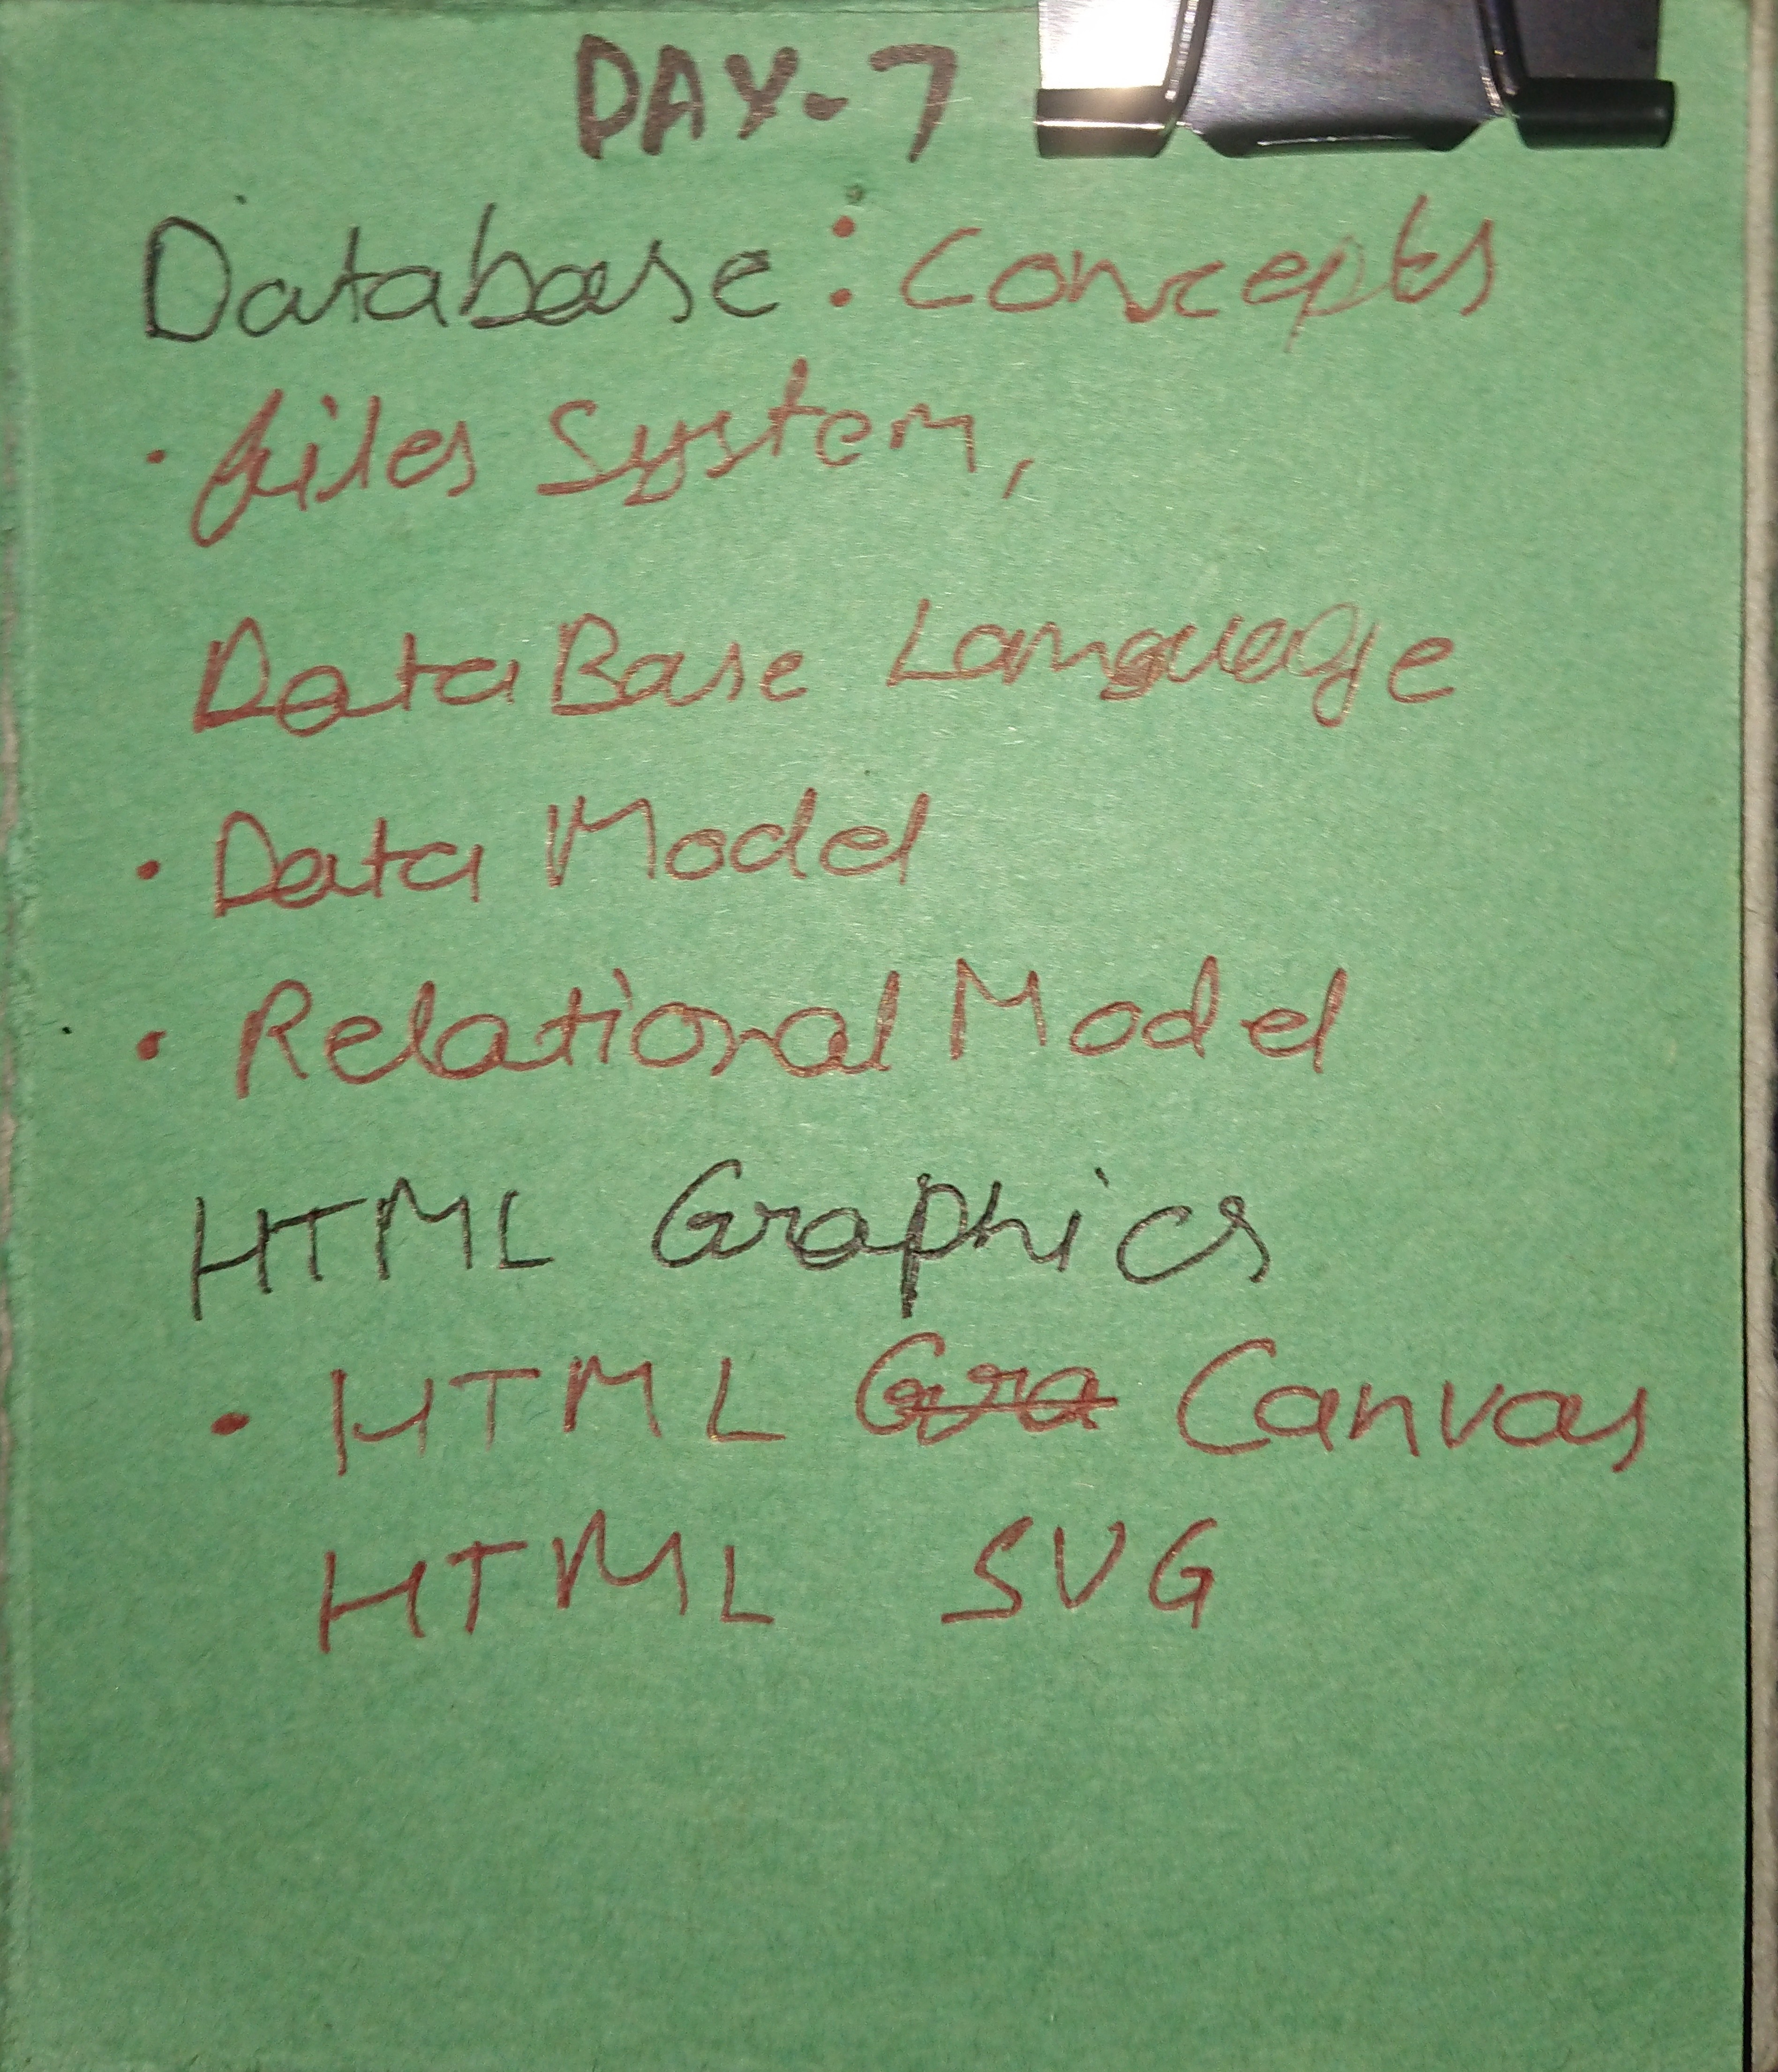 DAY-7
Database: Concepts
· files System,
DataBase Language
· Data Model
· Relational Model
HTML Graphics
· HTML Gra Canvas
HTML SVG